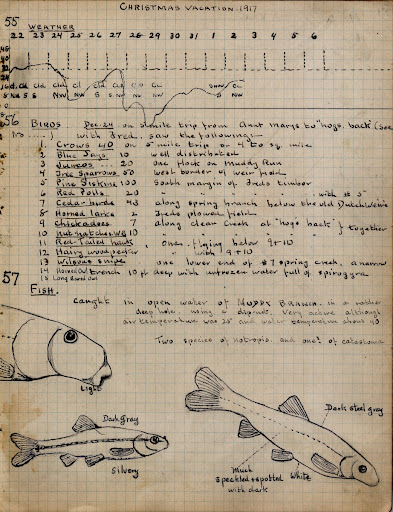 CHRISTMAS VACATION 1917
55
WEATHER
22 23 24 25 26 27 28 29 30 31 1 2 3 4 5 6
56 BIRDS Dec 24 on 5 mile trip from Aunt Marys to "hogs back" (see
with Fred, saw the following:
1. Crows 40 on 5 mile trip or 4 to sq. mile
2 Blue Jays 10 well distributed
3 Juncos 20 one flock on Muddy Run
4 Tree Sparrows 50 west border of weir field
5 Pine Siskins 100 South margin of Freds timber
6 Red Polls 20 " " " " with # 5
7 Cedar birds 43 along spring branch below the old Dutch
8 Horned larks 2 Freds plowed field
9 Chickadees 7 along clear creek at "hog's back" } together
10 Nuthatches WB 10 " " " " "
11 Red Tailed hawk 1 one flying below 9+10
12 Hairy woodpecker " with 9+10
13 Wilsons snipe 1 one lower end of #7 spring creek, a narrow
14 trench 10 ft deep with unfrozen water full of spirogyra
15 Long Eared Owl
57
FISH.
Caught in open water of MUDDY BRANCH, in a rather
deep hole, using a dipnet. Very active although
air temperature was 25° and water temperature about 40
Two species of notropis, and one? of catostoma
Light
Dark Gray
Silvery
Dark steel grey
Much
speckled + spotted
with dark
White